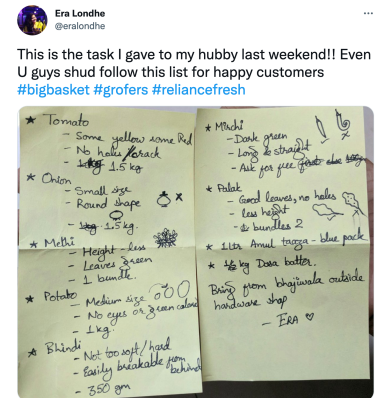 Era Londhe
@eralondhe
This is the task I gave to my hubby last weekend!! Even
U guys shud follow this list for happy customers
#bigbasket #grofers #reliancefresh
* Tomato
- Some yellow some Red
- No holes / crack
- 1.5 kg
* Onion
- Small size
- Round shape
- 1.5 kg.
* Methi
- Height - less
- Leaves green
- 1 bundle.
* Potato
- Medium size
- No eyes or green color
- 1 kg.
* Bhindi
- Not too soft / hard
- Easily breakable from behind
- 350 gm
* Mirchi
- Dark green
- Long & straight
- Ask for free
* Palak
- Good leaves, no holes
- less height
- bundles 2
* 1 ltr Amul taaza - blue pack
* kg Dosa batter.
Bring from bhajiwala outside
hardware shop
- ERA ♡